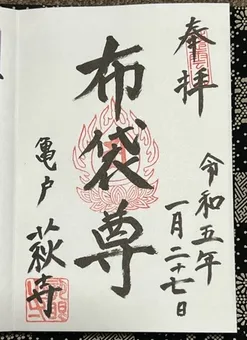 奉拝
令和五年
一月二十七日
布袋尊
亀戸
萩寺